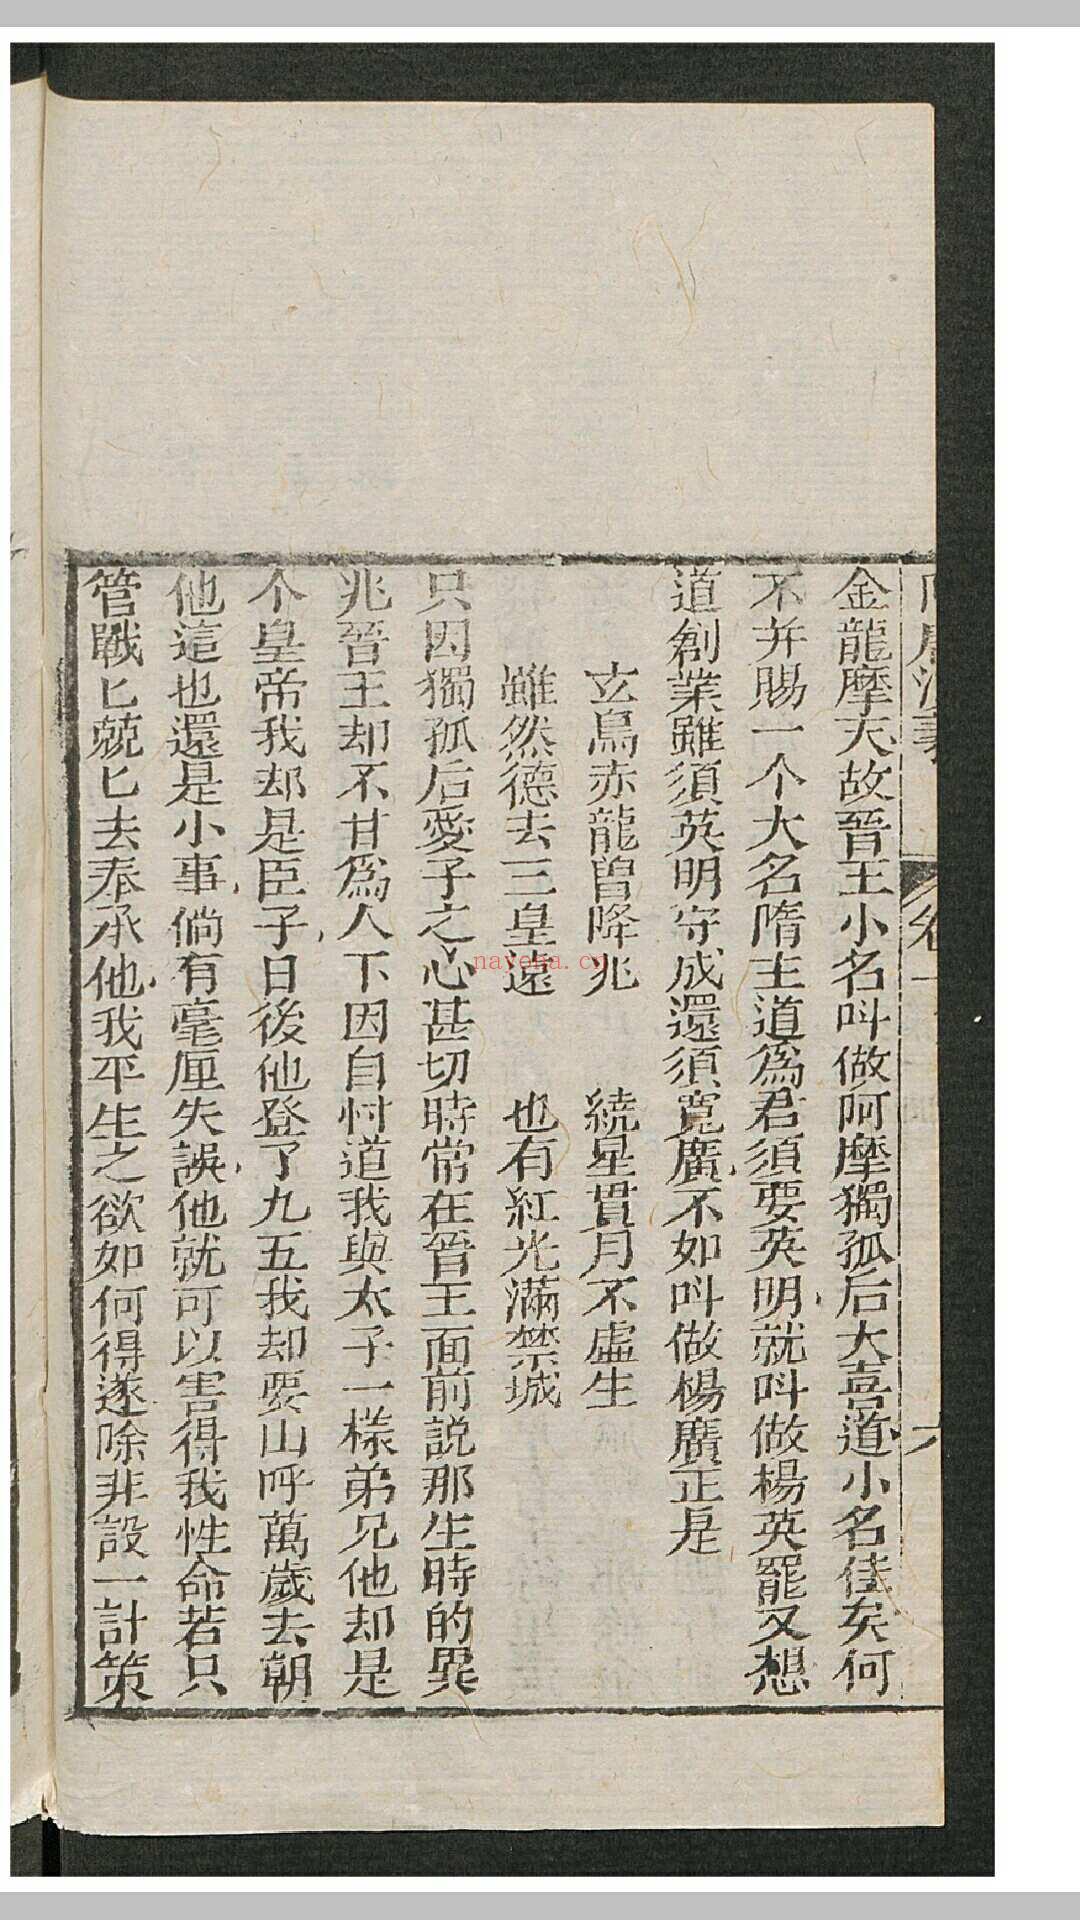 金龍摩天故晉王小名呌做阿摩獨孤后大喜道小名佳矣何
不并賜一个大名隋主道爲君須要英明就呌做楊英罷又想
道創業雖須英明守成還須寛廣不如呌做楊廣正是
玄鳥赤龍曽降兆 繞星貫月不虛生
雖然德去三皇遠 也有紅光滿禁城
只因獨孤后愛子之心甚切時常在晉王面前説那生時的異
兆晉王却不甘爲人下因自忖道我與太子一樣弟兄他却是
个皇帝我却是臣子日後他登了九五我却要山呼萬歲去朝
他這也還是小事倘有毫厘失誤他就可以害得我性命若只
管戰匕兢匕去奉承他我平生之欲如何得遂除非設一計策
nayona.cn